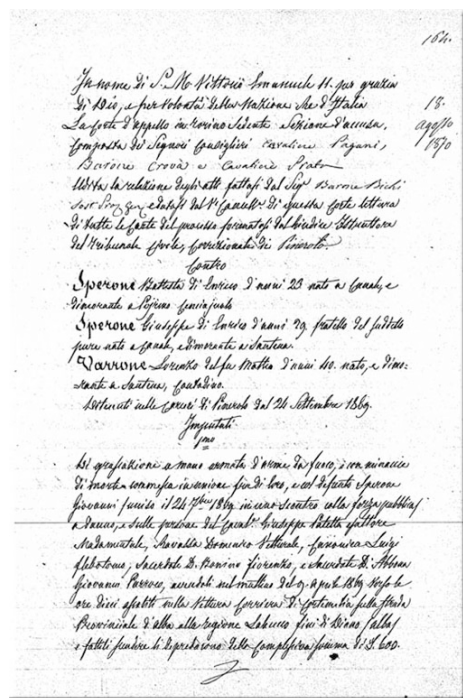 164.
In nome di S. M. Vittorio Emanuele II. per grazia
di Dio, e per volontà della Nazione Re d'Italia
18.
agosto
1870
La Corte d'appello in Torino Sedente Sezione d'accusa,
Composta dei Signori Consiglieri Cavaliere Pagani,
Barone Crova e Cavaliere
Udita la relazione degli atti fattasi dal Sigr Barone
e datasi dal di questa Corte lettura
di tutte le Carte del processo formatosi dal Giudice Istruttore
del Tribunale Civile, Correzionale di Pinerolo.
Contro
Sperone Battista di Enrico d'anni 23 nato a Canale, e
dimorante a Poirino
Sperone Giuseppe di Enrico d'anni 29 fratello del suddetto
pure nato a Canale, e dimorante a Santena.
Varrone Lorenzo del fu Mattia d'anni 40. nato, e dimo-
rante a Santena, Contadino.
Detenuti nelle Carceri di Pinerolo dal 24 Settembre 1869.
Imputati
1mo
Di grassazione a mano armata d'arme da fuoco, e con minaccie
di morte commessa in unione fra di loro, e col defunto Sperone
Giovanni ucciso il 24 7bre 1869 in uno scontro colla forza pubblica
a danno, e sulle persone del Giuseppe fattore
Domenico Vetturale, Canonico Luigi
Sacerdote D. Bonino Fiorenzo, e Sacerdote D.
Giovanni Parroco, avendoli nel mattino del 9 Aprile 1869 verso le
ore dieci assaliti nella Vettura Corriera di Cortemilia sulla Strada
Provinciale d'Alba alla regione fini di Diano d'Alba
e fattili scendere li depredarono della complessiva somma di L. 600.